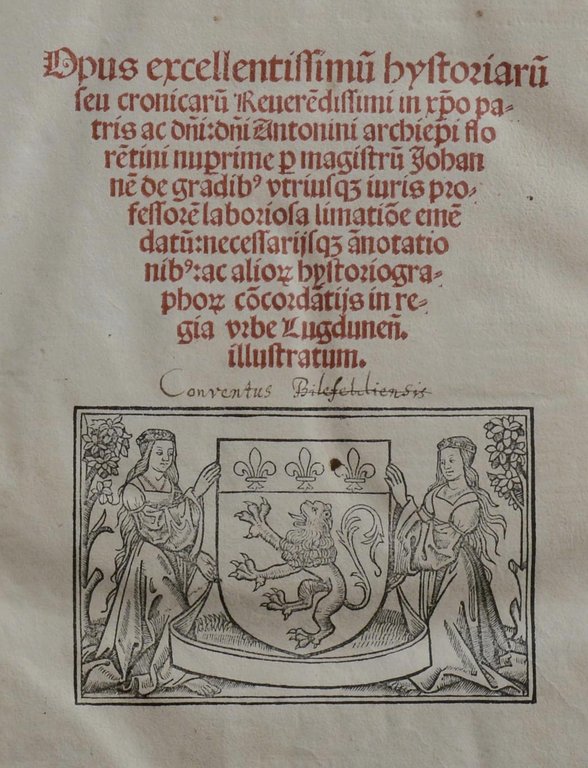 Opus excellentissimū hystoriarū
seu cronicarū Reuerēdissimi in xp̄o pa-
tris ac dn̄i: dn̄i Antonini archiep̄i flo
rētini nup̲rime p̲ magistrū Johan
nē de gradibꝰ vtriusqꝫ iuris pro-
fessorē laboriosa limatiōe emē
datū: necessarijsqꝫ ānotatio
nibꝰ: ac alioꝝ hystoriogra-
phoꝝ cōcordātijs in re-
gia vrbe Lugdunen̄.
illustratum.
Conventus Bilefeldiensis